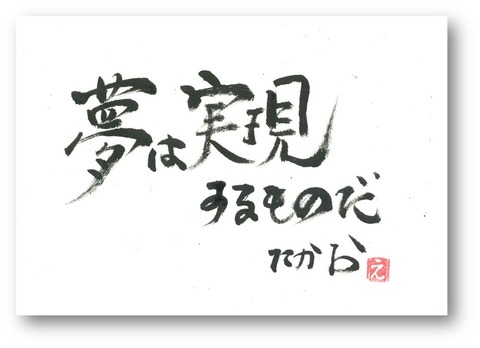 夢は実現
するものだ
たから
え